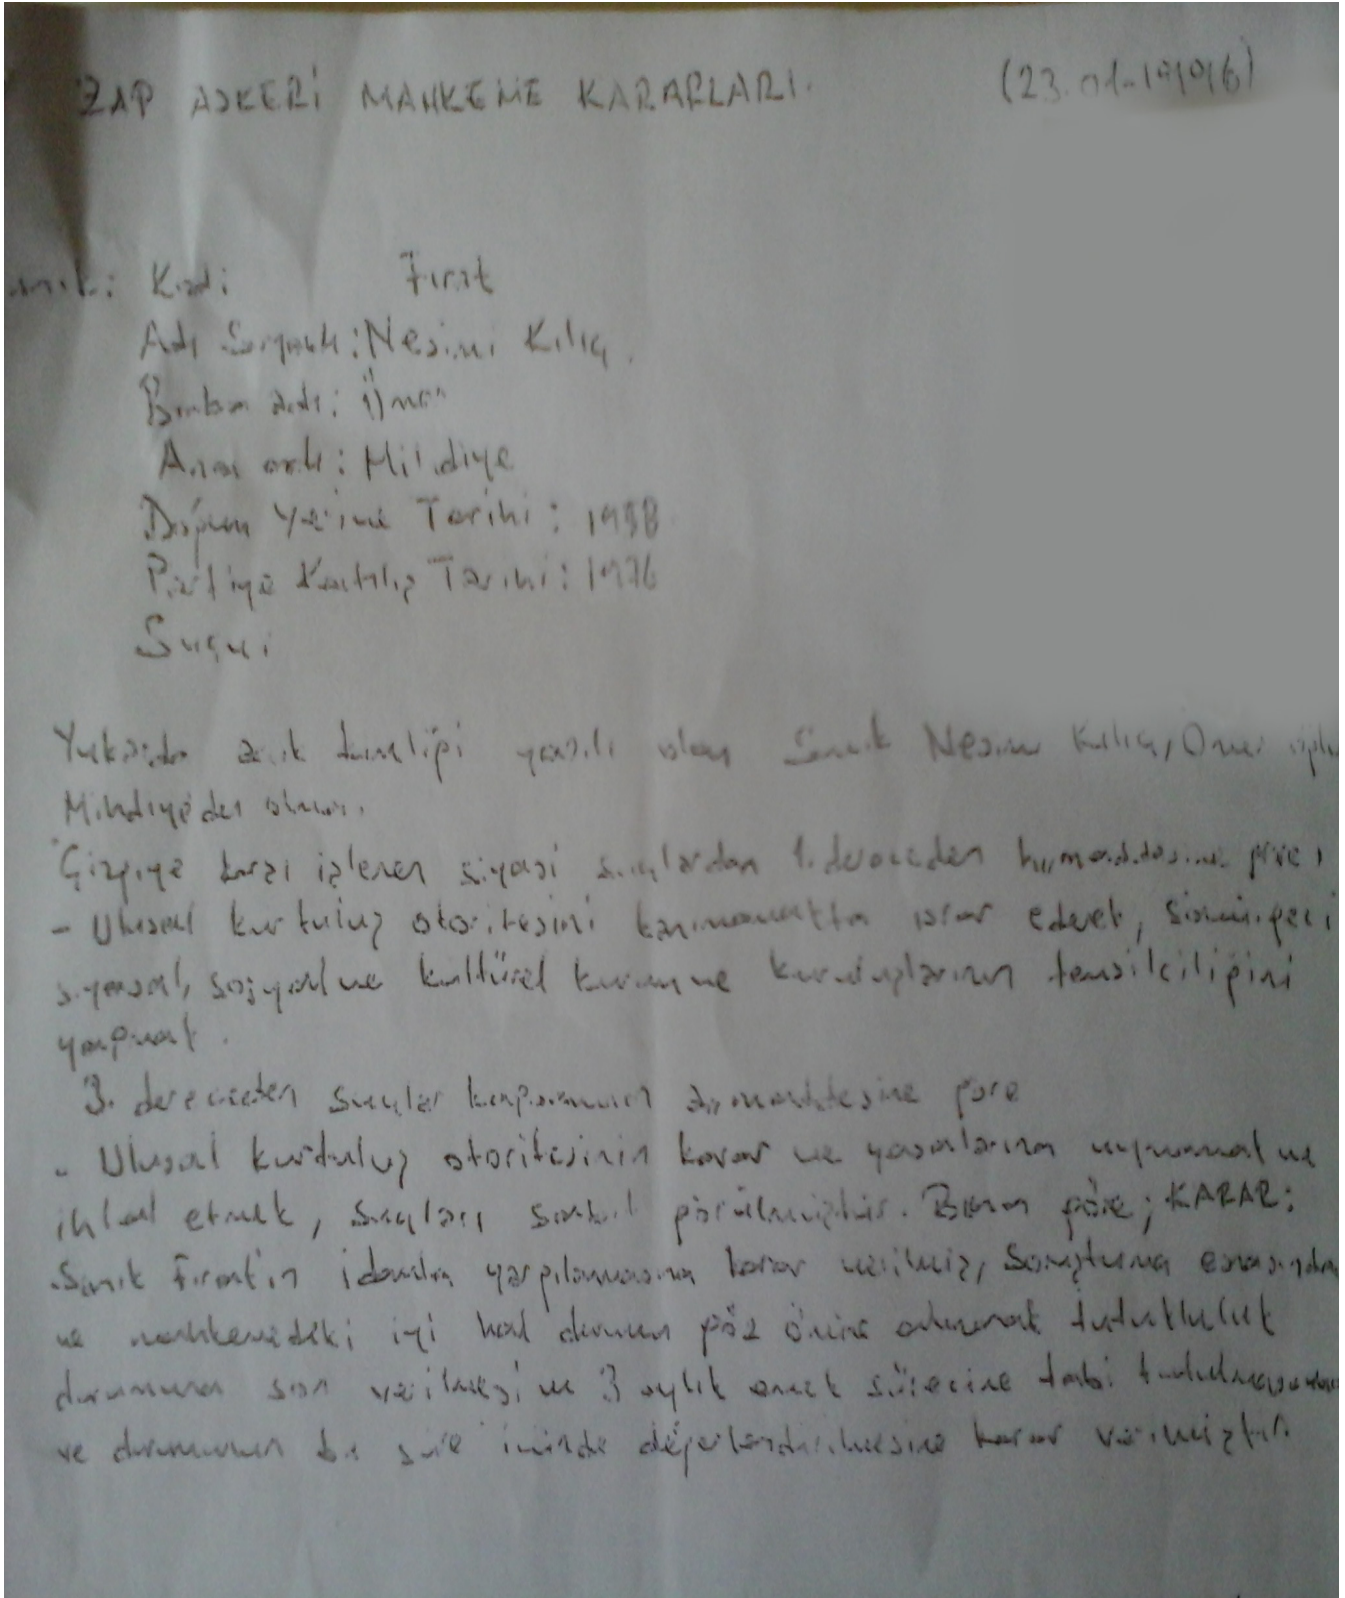 ZAP ASKERİ MAHKEME KARARLARI. (23.01.1996)
Kodi Fırat
Adı Soyadı: Nesimi Kılıç.
Baba adı: Ömer
Ana adı: Mihdiye
Doğum Yeri ve Tarihi: 1958
Partiye Katılış Tarihi: 1976
Suçu:
Yukarıda açık kimliği yazılı olan Sanık Nesimi Kılıç, Ömer oğlu
Mihdiye'den olma.
Çizgiye karşı işlenen siyasi suçlardan 1. dereceden maddesine göre;
- Ulusal kurtuluş otoritesini tanımamakta ısrar ederek, sömürgeci
siyasal, sosyal ve kültürel kurum ve kuruluşlarının temsilciliğini
yapmak.
3. dereceden suçlar kapsamının maddesine göre
- Ulusal kurtuluş otoritesinin karar ve yasalarına uymamak ve
ihlal etmek, suçları sabit görülmüştür. Buna göre; KARAR:
Sanık Fırat'ın idamla yargılanmasına karar verilmiş, Soruşturma esasında
ve mahkemedeki iyi hal durumu göz önüne alınarak tutukluluk
durumuna son verilmesi ve 3 aylık emek sürecine tabi
ve durumunun bu süre içinde değerlendirilmesine karar verilmiştir.